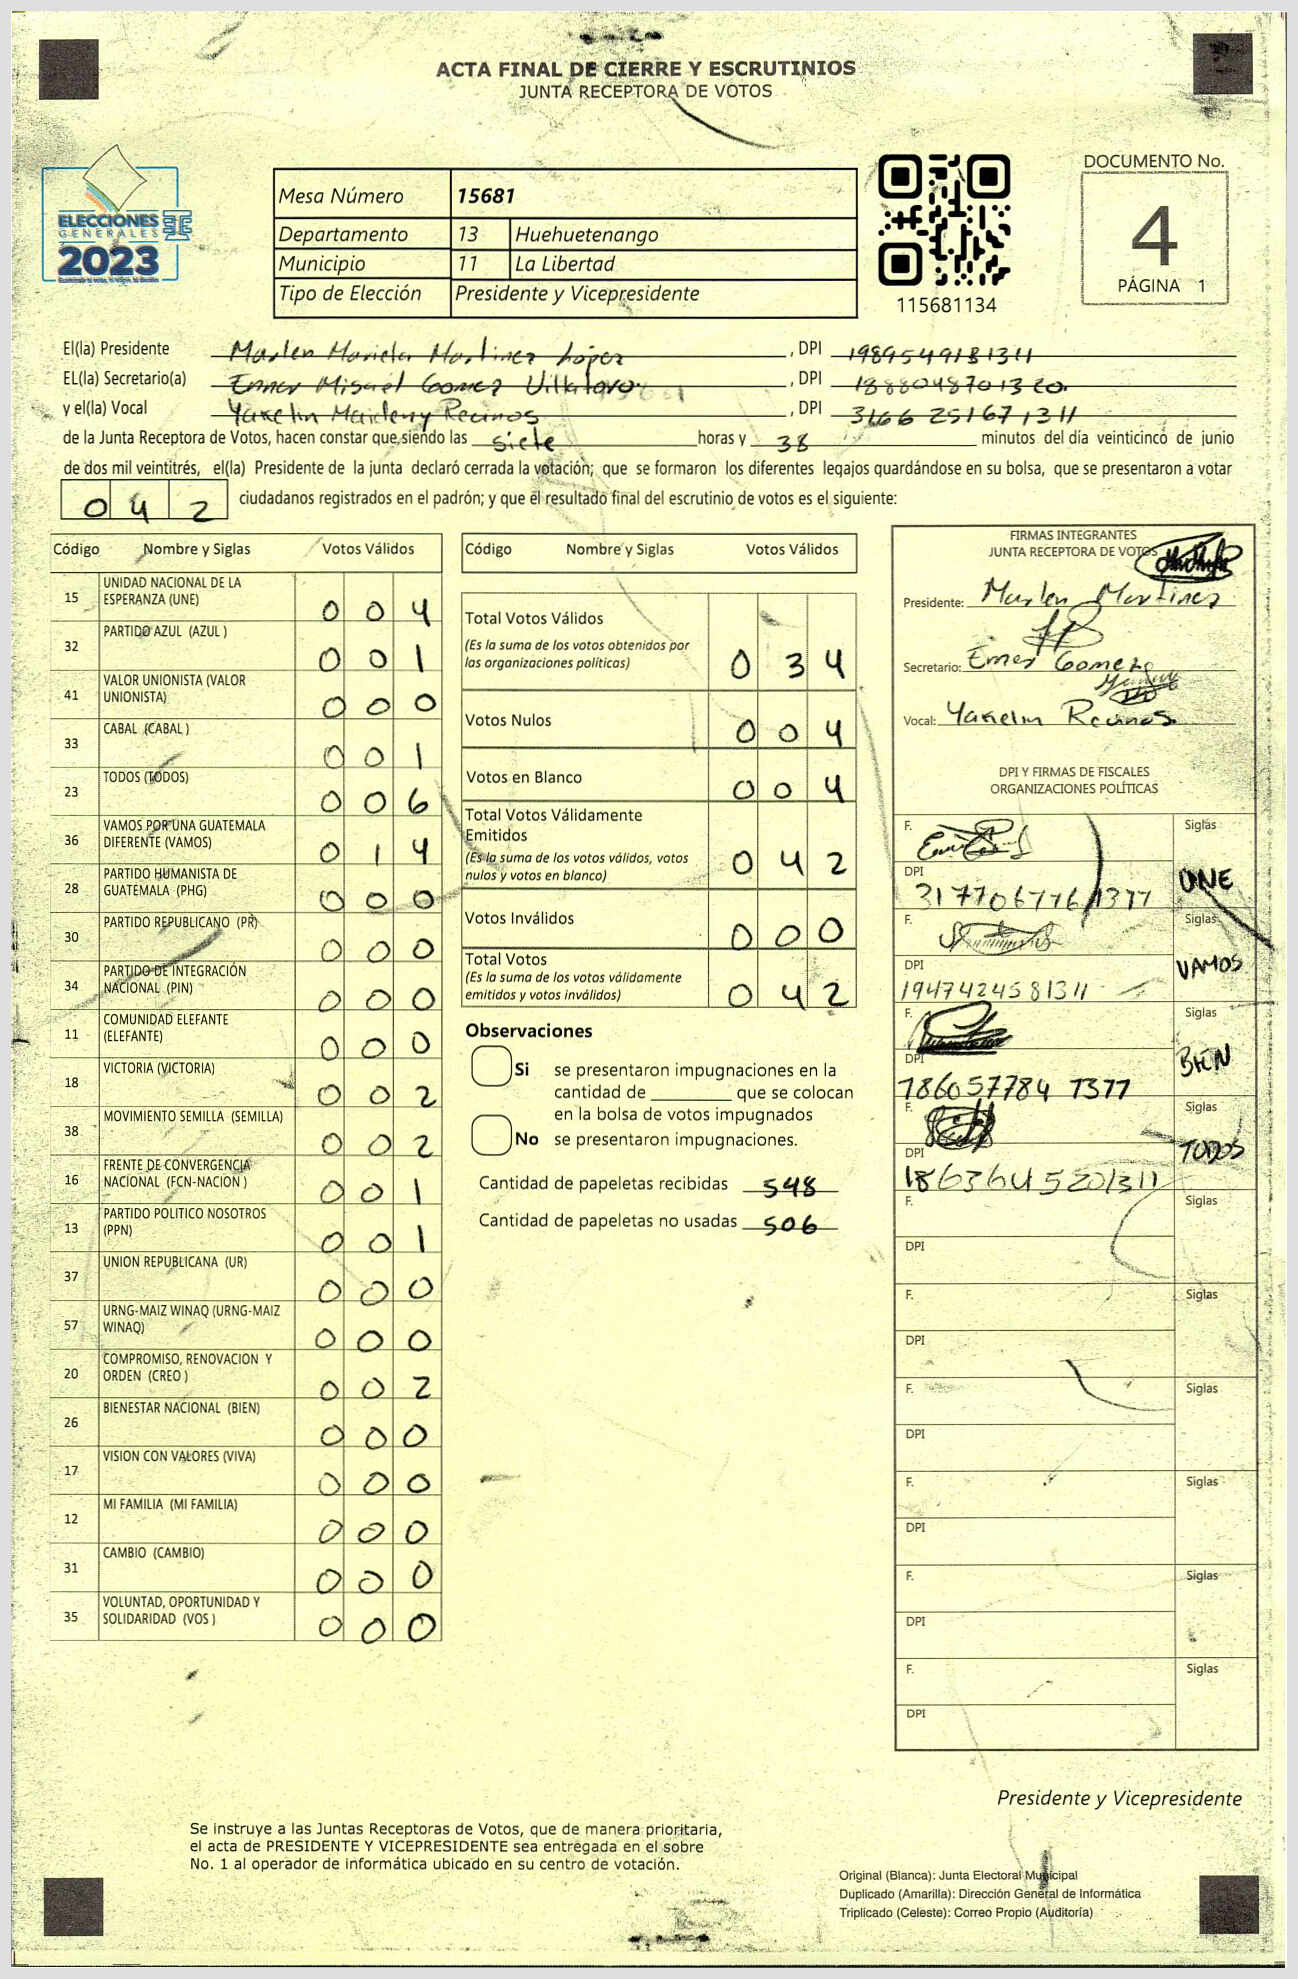 ACTA FINAL DE CIERRE Y ESCRUTINIOS
JUNTA RECEPTORA DE VOTOS
ELECCIONES
GENERALES
2023
Mesa Número 15681
Departamento 13 Huehuetenango
Municipio 11 La Libertad
Tipo de Elección Presidente y Vicepresidente
115681134
DOCUMENTO No.
4
PÁGINA 1
El(la) Presidente Marlen Mariela Martinez López , DPI 1989549181311
EL(la) Secretario(a) Enner Misael Gomez Villatoro , DPI 1888048701320
y el(la) Vocal Yakelin Maideny Recinos , DPI 3166251671311
de la Junta Receptora de Votos, hacen constar que siendo las siete horas y 38 minutos del día veinticinco de junio
de dos mil veintitrés, el(la) Presidente de la junta declaró cerrada la votación; que se formaron los diferentes legajos guardándose en su bolsa, que se presentaron a votar
042 ciudadanos registrados en el padrón; y que el resultado final del escrutinio de votos es el siguiente:
Código Nombre y Siglas Votos Válidos
15 UNIDAD NACIONAL DE LA
ESPERANZA (UNE) 0 0 4
32 PARTIDO AZUL (AZUL ) 0 0 1
41 VALOR UNIONISTA (VALOR
UNIONISTA) 0 0 0
33 CABAL (CABAL ) 0 0 1
23 TODOS (TODOS) 0 0 6
36 VAMOS POR UNA GUATEMALA
DIFERENTE (VAMOS) 0 1 4
28 PARTIDO HUMANISTA DE
GUATEMALA (PHG) 0 0 0
30 PARTIDO REPUBLICANO (PR) 0 0 0
34 PARTIDO DE INTEGRACIÓN
NACIONAL (PIN) 0 0 0
11 COMUNIDAD ELEFANTE
(ELEFANTE) 0 0 0
18 VICTORIA (VICTORIA) 0 0 2
38 MOVIMIENTO SEMILLA (SEMILLA) 0 0 2
16 FRENTE DE CONVERGENCIA
NACIONAL (FCN-NACION ) 0 0 1
13 PARTIDO POLITICO NOSOTROS
(PPN) 0 0 1
37 UNION REPUBLICANA (UR) 0 0 0
57 URNG-MAIZ WINAQ (URNG-MAIZ
WINAQ) 0 0 0
20 COMPROMISO, RENOVACION Y
ORDEN (CREO ) 0 0 2
26 BIENESTAR NACIONAL (BIEN) 0 0 0
17 VISION CON VALORES (VIVA) 0 0 0
12 MI FAMILIA (MI FAMILIA) 0 0 0
31 CAMBIO (CAMBIO) 0 0 0
35 VOLUNTAD, OPORTUNIDAD Y
SOLIDARIDAD (VOS ) 0 0 0
Código Nombre y Siglas Votos Válidos
Total Votos Válidos
(Es la suma de los votos obtenidos por
las organizaciones políticas) 0 3 4
Votos Nulos 0 0 4
Votos en Blanco 0 0 4
Total Votos Válidamente
Emitidos
(Es la suma de los votos válidos, votos
nulos y votos en blanco) 0 4 2
Votos Inválidos 0 0 0
Total Votos
(Es la suma de los votos válidamente
emitidos y votos inválidos) 0 4 2
Observaciones
Si se presentaron impugnaciones en la
cantidad de ________ que se colocan
en la bolsa de votos impugnados
No se presentaron impugnaciones.
Cantidad de papeletas recibidas 548
Cantidad de papeletas no usadas 506
FIRMAS INTEGRANTES
JUNTA RECEPTORA DE VOTOS
Presidente: Marlen Martinez
Secretario: Enner Gomez
Vocal: Yakelin Recinos
DPI Y FIRMAS DE FISCALES
ORGANIZACIONES POLÍTICAS
F. Siglas
DPI 3177067761377 UNE
F. Siglas
DPI 1947424581311 VAMOS
F. Siglas
DPI 786057784 1311 BIEN
F. Siglas
DPI TODOS
F. Siglas
DPI
F. Siglas
DPI
F. Siglas
DPI
F. Siglas
DPI
F. Siglas
DPI
F. Siglas
DPI
Presidente y Vicepresidente
Se instruye a las Juntas Receptoras de Votos, que de manera prioritaria,
el acta de PRESIDENTE Y VICEPRESIDENTE sea entregada en el sobre
No. 1 al operador de informática ubicado en su centro de votación.
Original (Blanca): Junta Electoral Municipal
Duplicado (Amarilla): Dirección General de Informática
Triplicado (Celeste): Correo Propio (Auditoría)